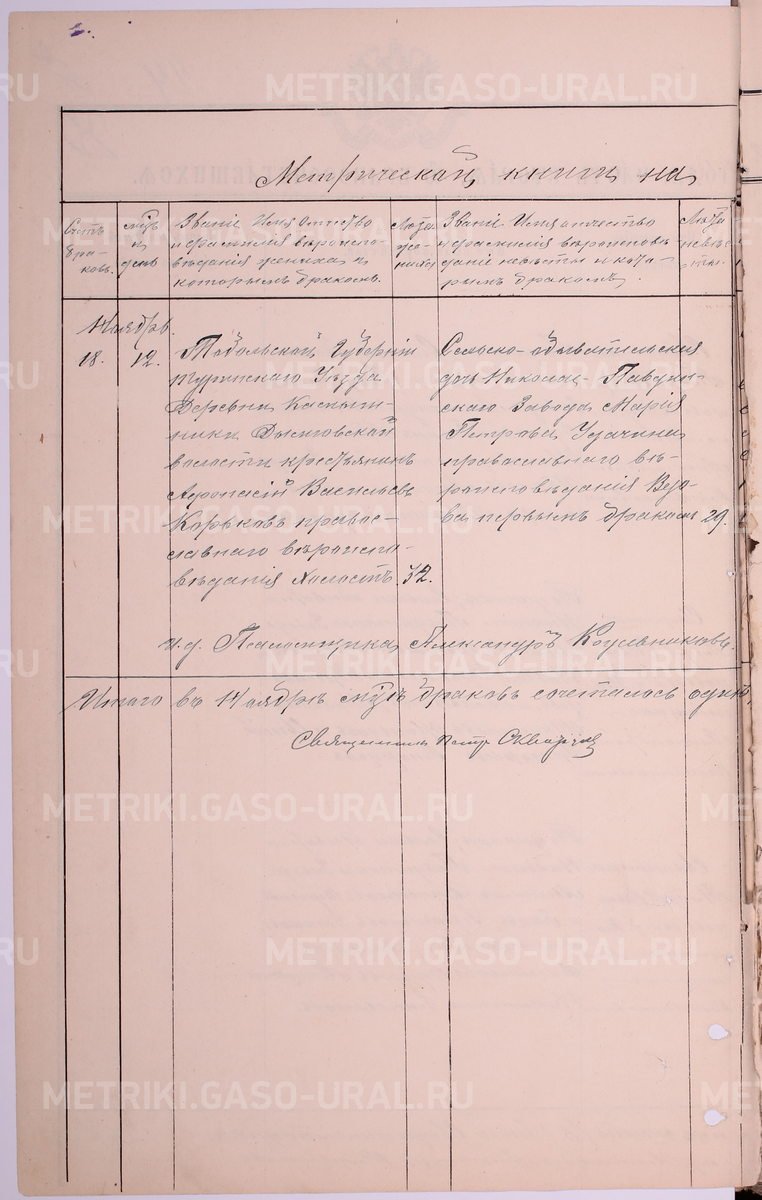 2.
METRIKI.GASO-URAL.RU
Метрическая книга на
Счетъ бра-ковъ.
Мѣс. и день
Званіе Имя Отчество
и фамилія вѣроиспо-
вѣданія жениха и
которымъ бракомъ.
Лѣта же-ниха
Званіе Имя отчество
и фамилія вѣроиспов
даніе невѣсты и кото-
рымъ бракомъ.
Лѣта невѣс-ты.
Ноябрь.
18. 12.
Тобольской Губерніи
Туринскаго Уѣзда
Деревни
волости крестьянинъ
Афонасій Васильевъ
Корьковъ правос-
лавнаго вѣроиспо-
вѣданія Холостъ. 32.
Сельско-обывательская
дочь Николае-Павдин-
скаго Завода Марія
Петрова Удачина
православнаго вѣ-
роисповѣданія
первымъ бракомъ 29.
И. д. Псаломщика Александръ
Итого въ Ноябрѣ мѣсяцѣ браковъ сочеталось одинъ,
Священникъ Петръ